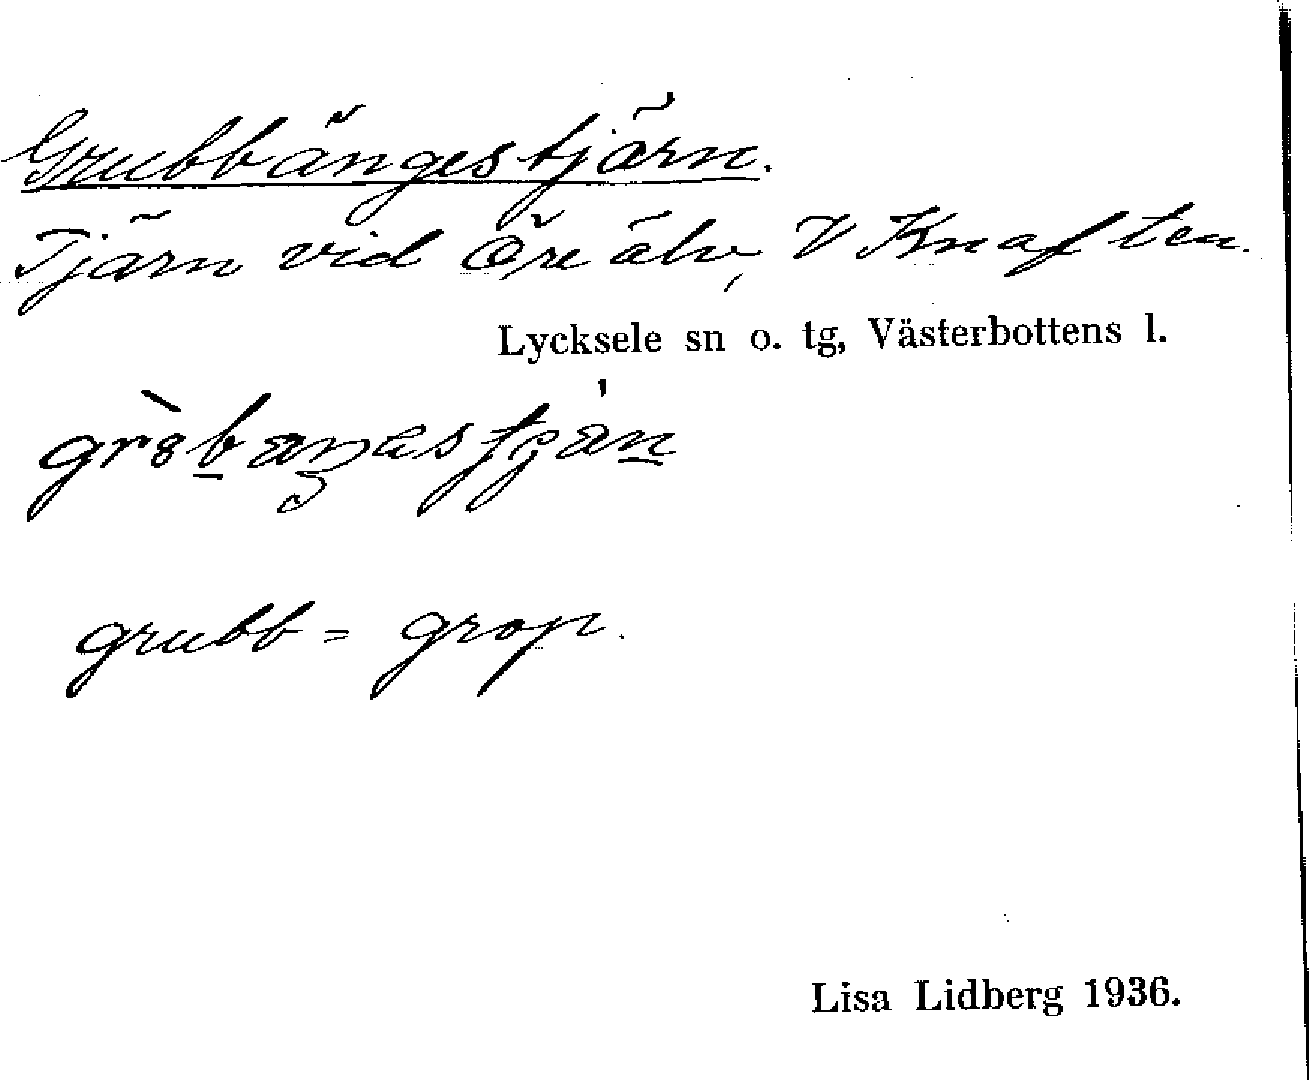 Grubbängestjärn.
Tjärn vid Öre älv, V Knaften.
Lycksele sn o. tg, Västerbottens l.
grubb = grop.
Lisa Lidberg 1936.